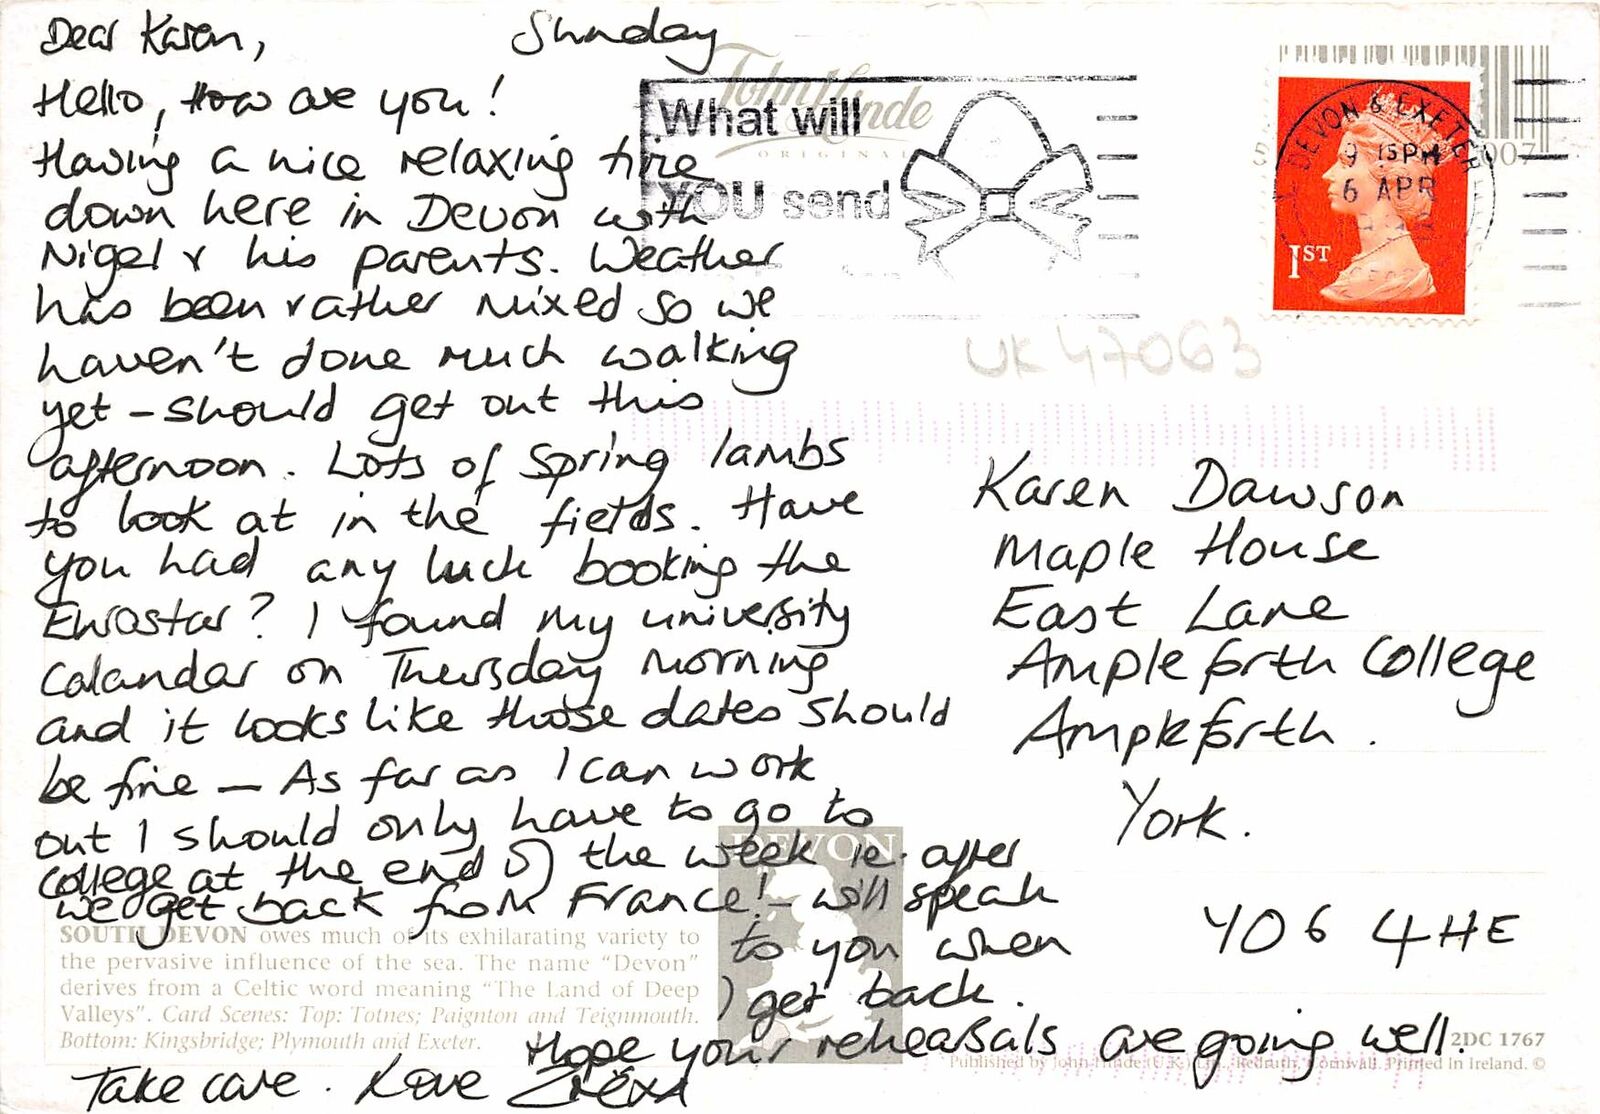 Dear Karen, Sunday
Hello, How are you!
Having a nice relaxing time
down here in Devon with
Nigel & his parents. Weather
has been rather mixed so we
haven't done much walking
yet – should get out this
afternoon. Lots of Spring lambs
to look at in the fields. Have
you had any luck booking the
Eurostar? I found my university
calandar on Thursday morning
and it looks like those dates should
be fine – As far as I can work
out I should only have to go to
college at the end of the week ie. after
we get back from France! – will speak
to you when
I get back.
Hope your rehearsals are going well.
Take care. Love
John Hinde
ORIGINAL
What will
YOU send
DEVON & EXETER
9 15PM
6 APR
1ST
UK 47063
Karen Dawson
Maple House
East Lane
Ampleforth College
Ampleforth.
York.
YO6 4HE
DEVON
SOUTH DEVON owes much of its exhilarating variety to
the pervasive influence of the sea. The name "Devon"
derives from a Celtic word meaning "The Land of Deep
Valleys". Card Scenes: Top: Totnes; Paignton and Teignmouth.
Bottom: Kingsbridge; Plymouth and Exeter.
2DC 1767
Published by John Hinde (U.K.) Ltd., Redruth, Cornwall. Printed in Ireland. ©